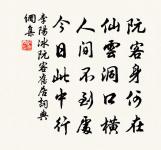 阮客身何在
仙雲洞口橫
人間不到處
今日此中行
李陽冰阮客舊居詞典
網集